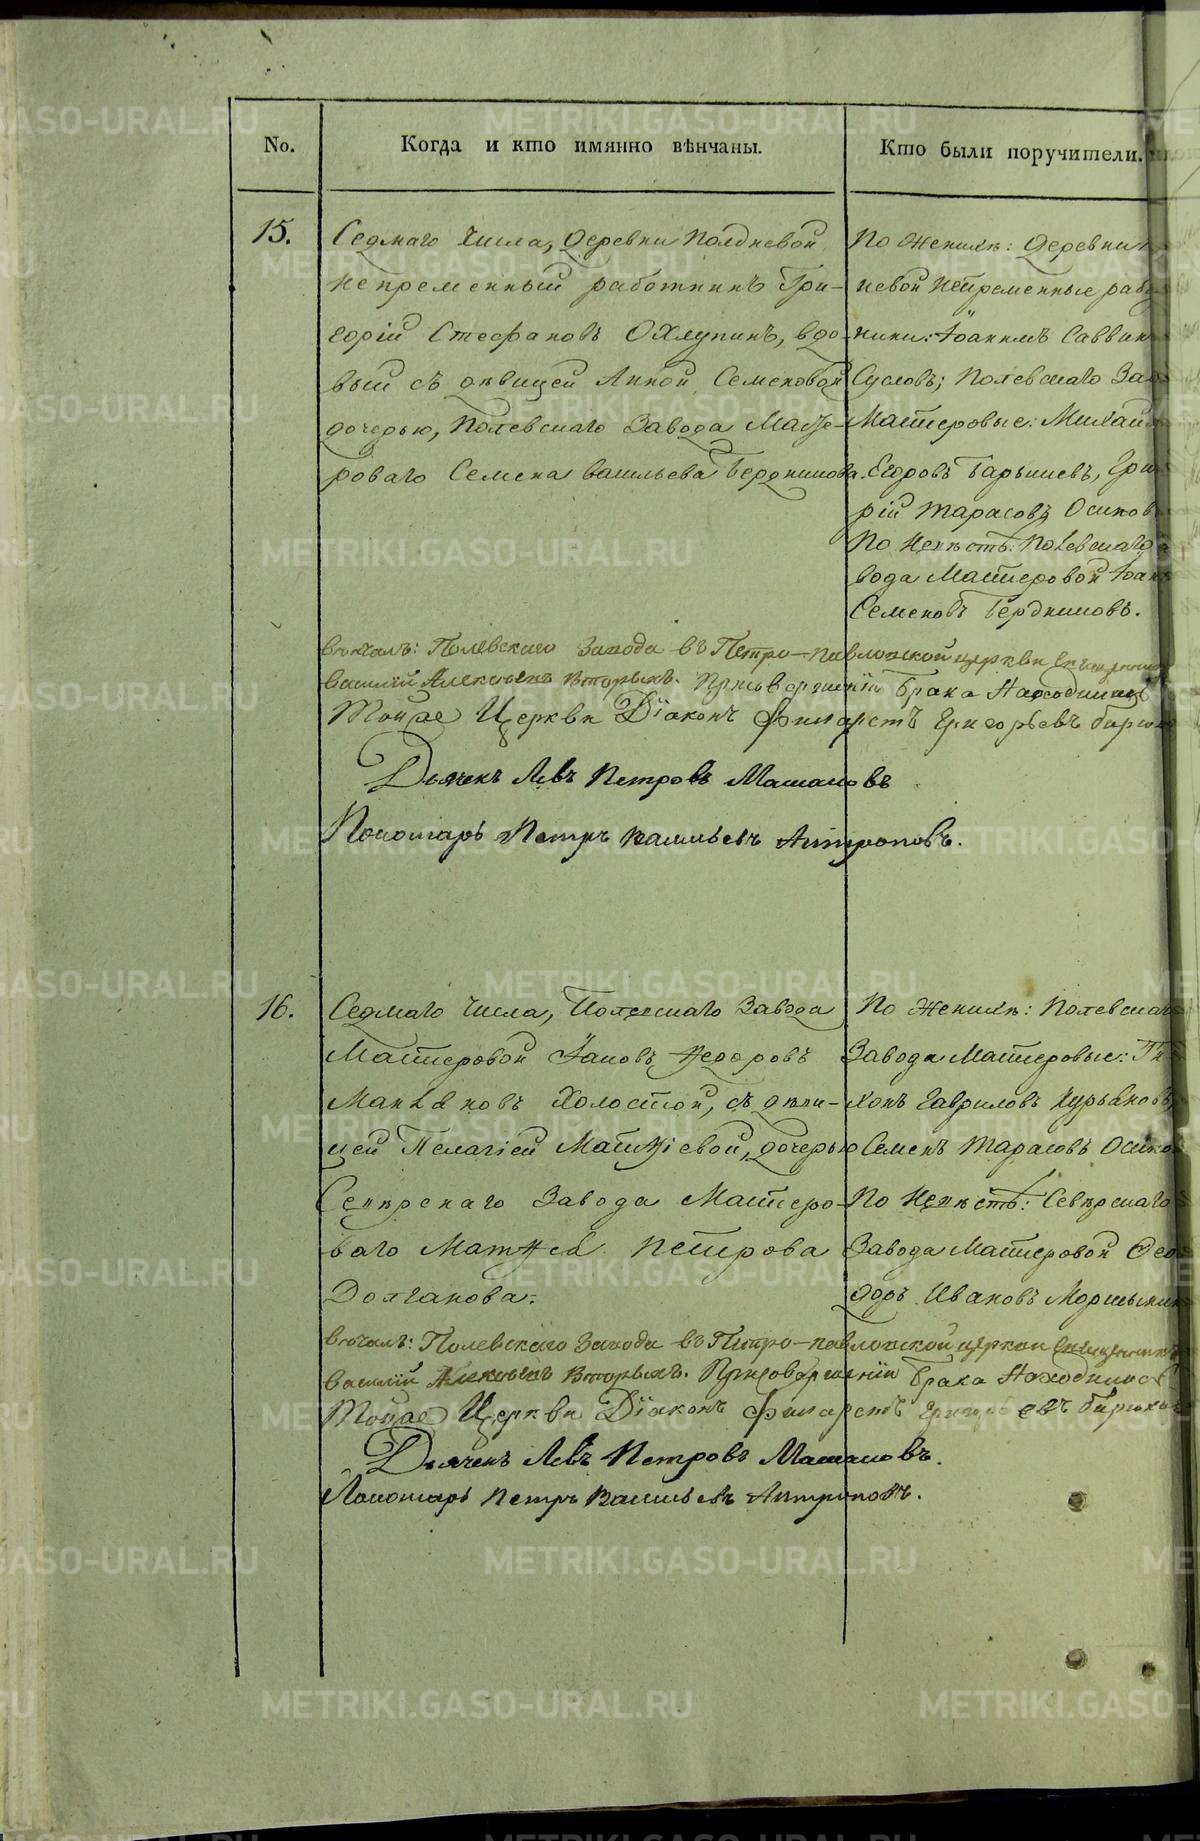 No.
Когда и кто имянно вѣнчаны.
Кто были поручители.
15.
Седмаго числа, деревни Полдневой
непременный работникъ Гри-
горій Стефановъ Охлупинъ, вдо-
вый съ дѣвицей Анной Семеновой
дочерью, Полевскаго Завода Масте-
роваго Семена Васильева Бердникова.
По Женихѣ: деревни
невой непременные рабо
ники: Іоаннъ Саввин
Сусловъ; Полевскаго Заво
Мастеровые: Михаил
Егоровъ Барышевъ, Гри
рій Тарасовъ Осипов
По Невѣстѣ: Полевскаго
вода Мастеровой Іоан
Семеновъ Бердниковъ.
вѣнчалъ: Полевскаго Завода въ Петро-павловской церкви Священник
Василій Алексѣевъ Вторыхъ. При совершеніи Брака Находились
Тойже Церкви Діаконъ Филаретъ Григорьевъ Бирюко
Дьячекъ Левъ Петровъ Машановъ
Пономарь Петръ Васильевъ Антроповъ.
16.
Седмаго числа, Полевскаго Завода
Мастеровой Іаковъ Ѳедоровъ
Холостой, съ дѣви-
цей Пелагіей Матѳіевой, дочерью
Сѣверскаго Завода Мастеро-
ваго Матѳея Петрова
Долганова.
По Женихѣ: Полевскаго
Завода Мастеровые: Ти
хонъ Гавриловъ Курбановъ,
Семенъ Тарасовъ Осипо
По Невѣстѣ: Сѣверскаго
Завода Мастеровой Ѳео
доръ Ивановъ
вѣнчалъ: Полевскаго Завода въ Петро-павловской церкви Священникъ
Василій Алексѣевъ Вторыхъ. При совершеніи Брака Находились
Тойже Церкви Діаконъ Филаретъ Григорьевъ Бирюков
Дьячекъ Левъ Петровъ Машановъ.
Пономарь Петръ Васильевъ Антроповъ.
METRIKI.GASO-URAL.RU